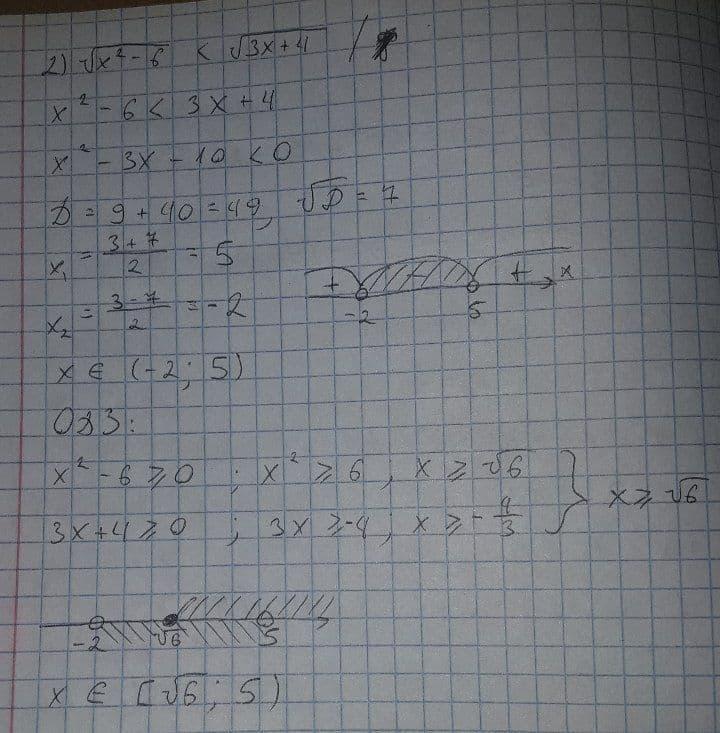 2) √x² - 6 < √3x + 4 /
x² - 6 < 3x + 4
x² - 3x - 10 < 0
D = 9 + 40 = 49, √D = 7
x₁ = (3 + 7)/2 = 5
x₂ = (3 - 7)/2 = -2
+ + x
-2 5
x ∈ (-2; 5)
ОДЗ:
x² - 6 ⩾ 0 ; x² ⩾ 6, x ⩾ √6
3x + 4 ⩾ 0 ; 3x ⩾ -4, x ⩾ -4/3 } x ⩾ √6
-2 √6 5
x ∈ [√6; 5)